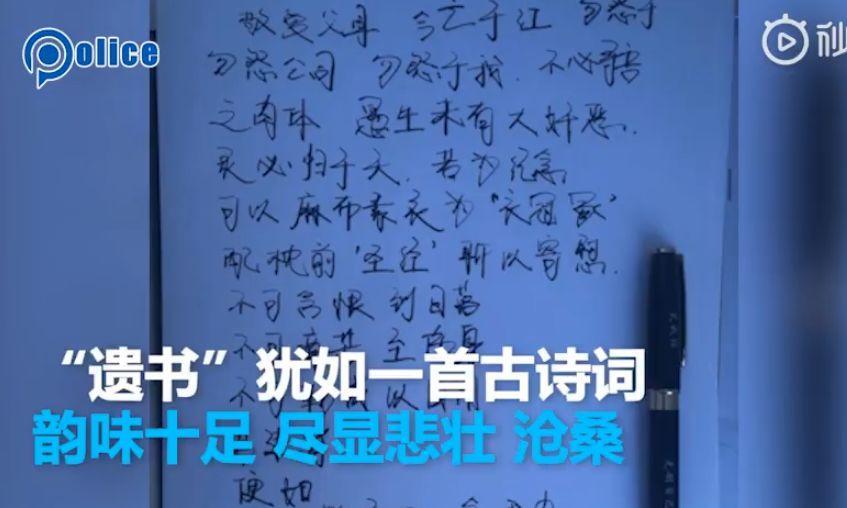 Police
秒
敬爱父母 今亡于江 勿怒于
勿怒公司 勿怒于我. 不必
之肉体 愚生来有大奸恶.
灵必归于天. 若为纪念
可以麻布素衣为“衣冠冢”
配枕前‘圣经’聊以寄想.
不可含恨到日暮
“遗书”犹如一首古诗词
韵味十足 尽显悲壮 沧桑
便如